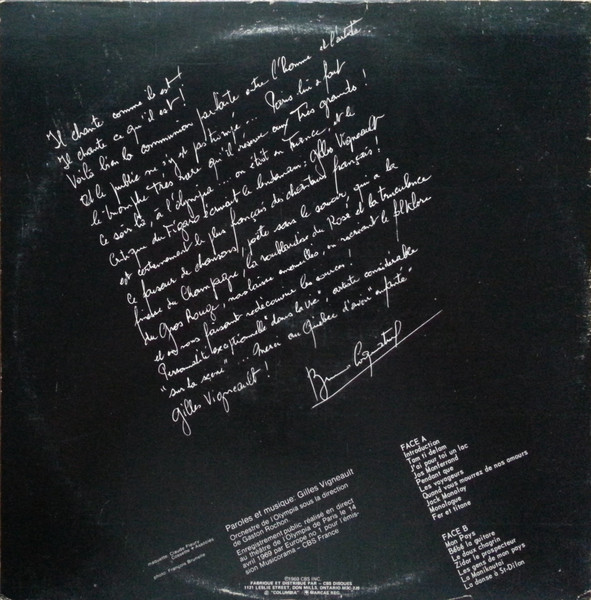 Il chante comme il est !
Il chante ce qu'il est !
Voilà bien la communion parfaite entre l'homme et l'artiste
Et le public ne s'y est pas trompé... Paris lui a fait
le triomphe très rare qu'il réserve aux Très grands !
Ce soir là, à l'Olympia... on était en France, et le
critique du Figaro écrivait le lendemain : Gilles Vigneault
est certainement le plus français des chanteurs français !
Ce faiseur de chansons, poète sans le savoir, qui a la
finesse du Champagne, la du Rosé et la truculence
du Gros Rouge, nous laisse émerveillés, en recréant le folklore
et en nous faisant redécouvrir les sources !
Personnalité exceptionnelle "dans la vie", artiste considérable
"sur la scène"... merci au Québec d'avoir "enfanté"
Gilles Vigneault !
Bruno Coquatrix
maquette: Claude
photo: François
Paroles et musique: Gilles Vigneault
Orchestre de l'Olympia sous la direction
de Gaston Rochon.
Enregistrement public réalisé en direct
au théâtre de l'Olympia de Paris le 14
avril 1969 par Europe no 1 pour l'émis-
sion Musicorama - CBS France
FACE A
Introduction
Tam ti delam
J'ai pour toi un lac
Jos Monferrand
Pendant que
Les voyageurs
Quand vous mourrez de nos amours
Jack Monoloy
Monologue
Fer et titane
FACE B
Mon Pays
Bébé la guitare
La douce Pougrin
Zidor le prospecteur
Les gens de mon pays
La Manikoutai
La danse à St-Dilon
℗1969 CBS INC.
FABRIQUÉ ET DISTRIBUÉ PAR - CBS DISQUES
1121 LESLIE STREET, DON MILLS, ONTARIO
® "COLUMBIA", MARCAS REG.